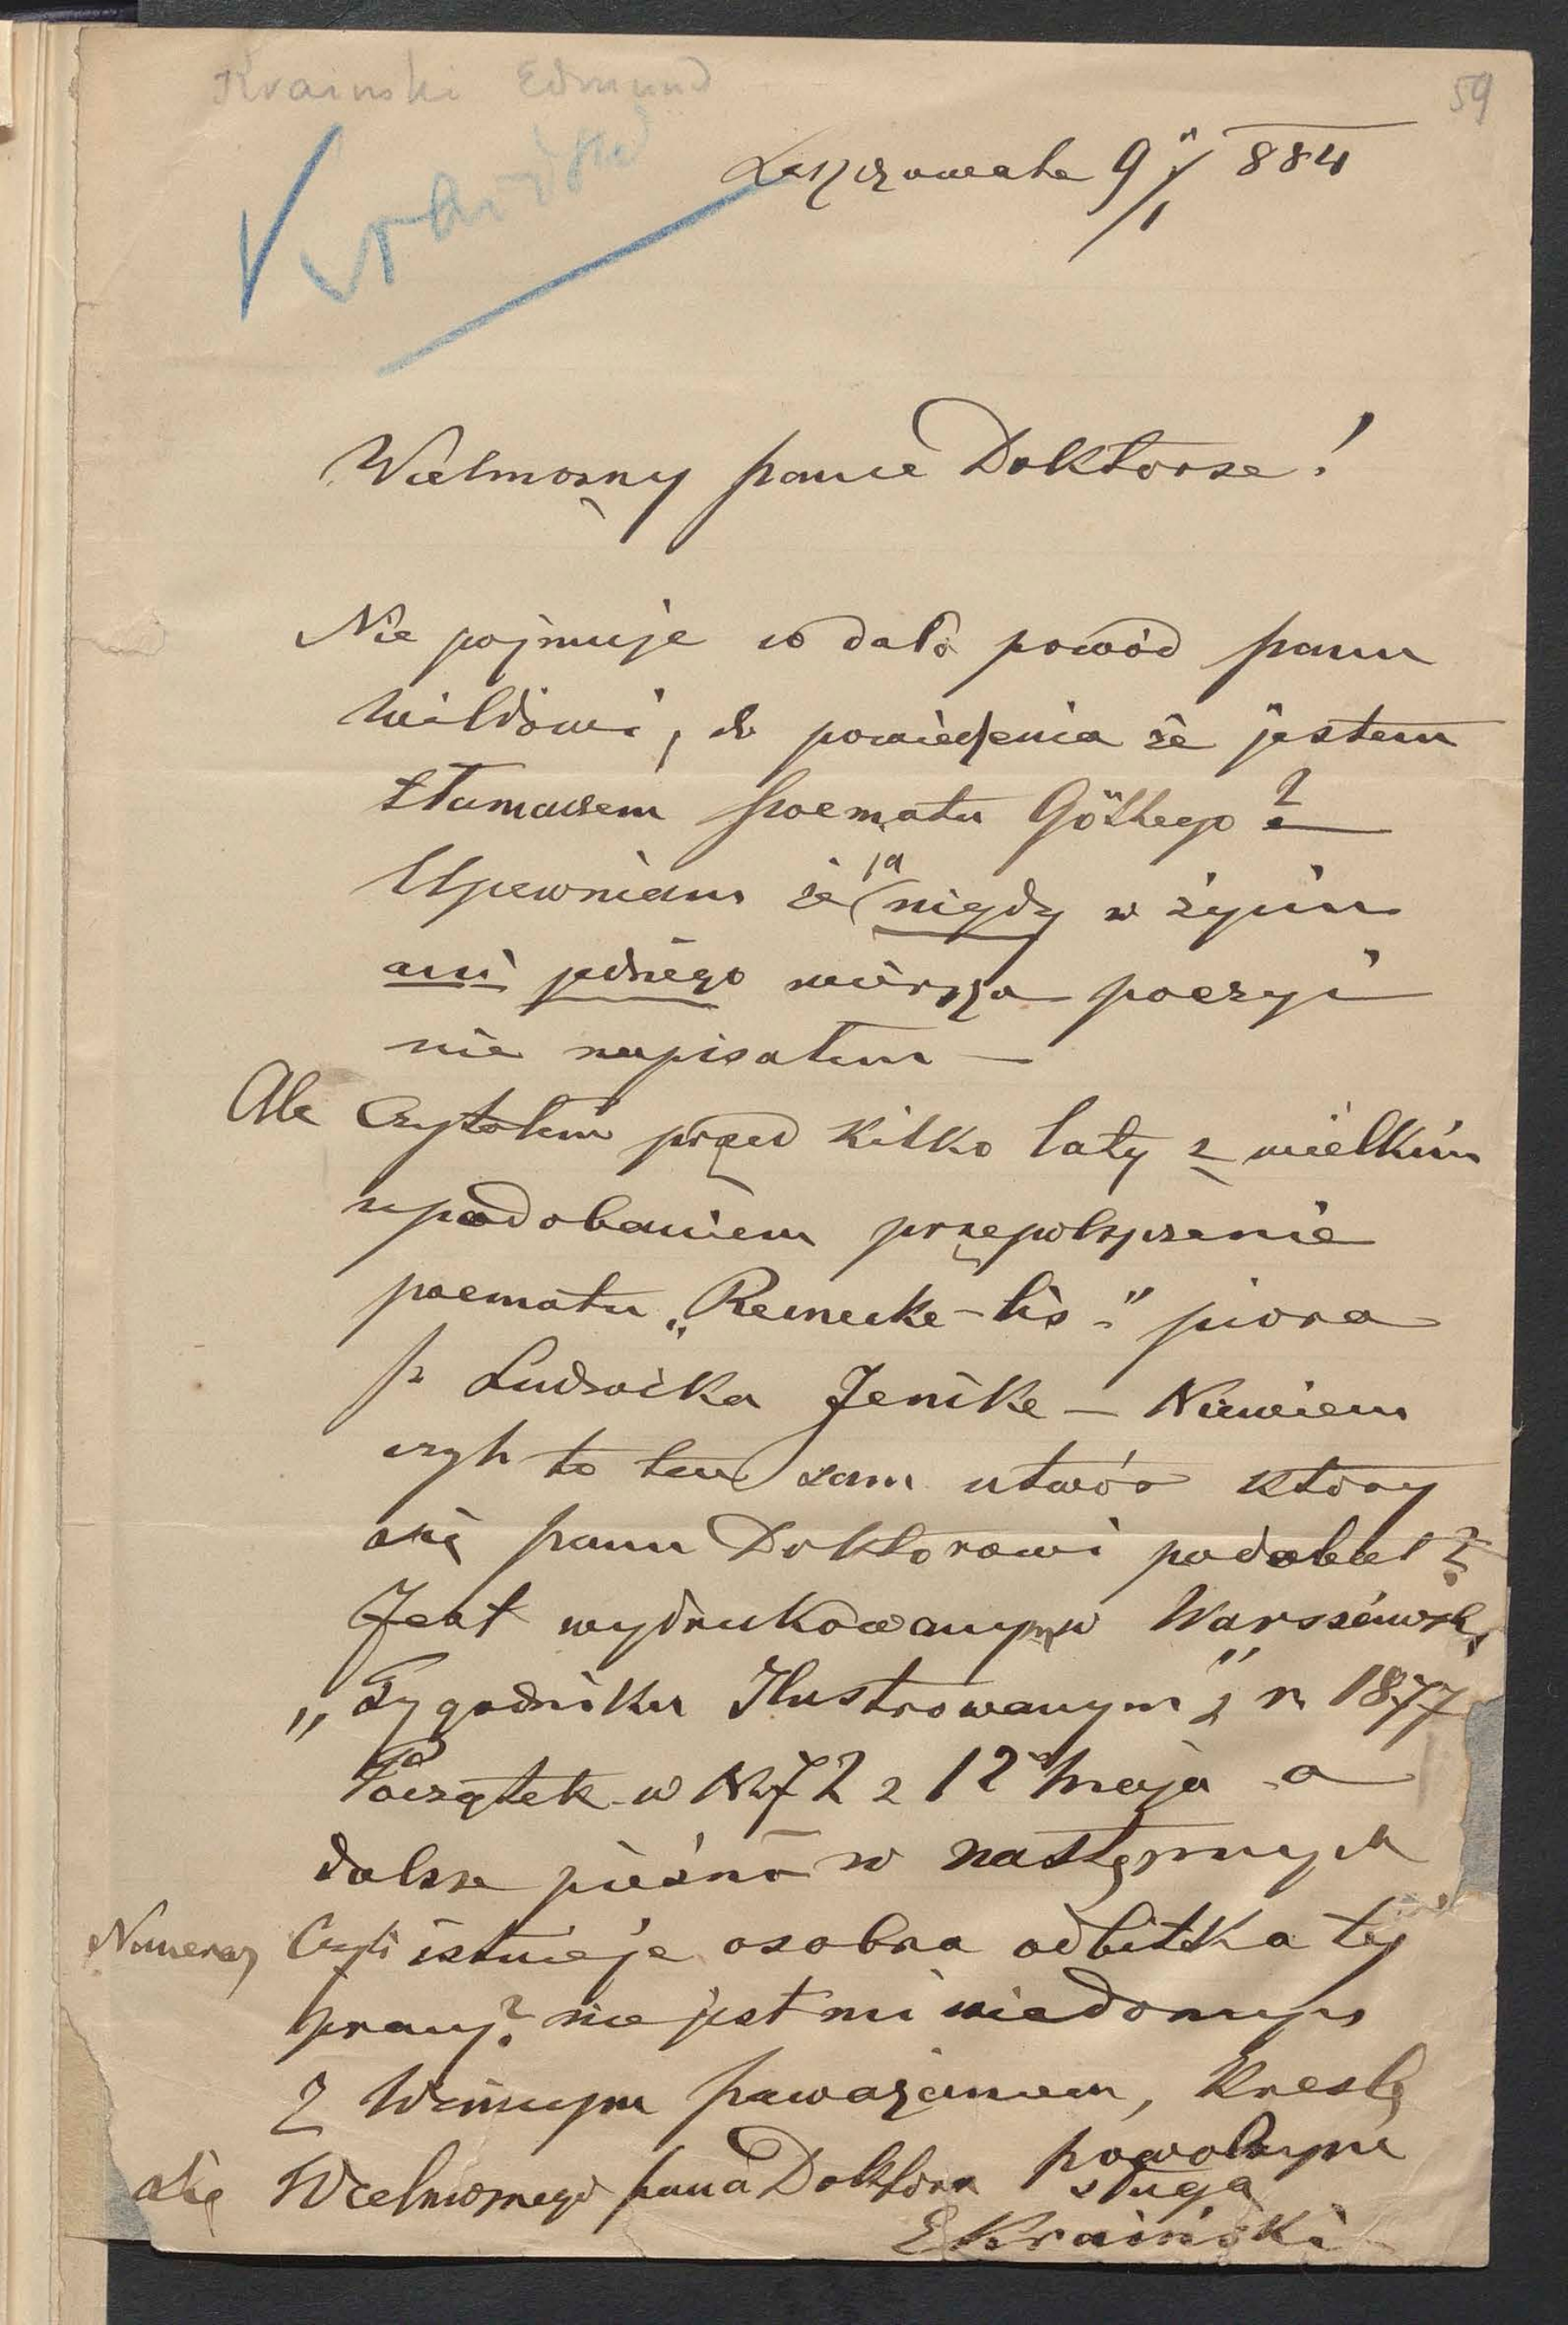 Krainski Edmund
59
Kraiński
Leszczowate 9/1 884
Wielmożny panie Doktorze!
Nie pojmuje co dało powód panu
Wildowi, do powiedzenia że jestem
tłumaczem poematu Göthego?
Upewniam że ja nigdy w życiu
ani jednego wiersza poezyi
nie napisałem —
Ale Czytałem przed kilko laty z wielkim
upodobaniem przepolszczenie
poematu „Reinecke-lis" pióra
p Ludwika Jenike — Niewiem
czyli to ten sam utwór który
się panu Doktorowi podobał?
Jest wydrukowanym w Warszawsk.
„Tygodniku Ilustrowanym" z r. 1877
Początek w Nr 72 z 12 maja a
dalsze pieśni w następnych
Numerach Czyli istnieje osobna odbitka tej
pracy? nie jest mi wiadomym
Z Winnym poważaniem, Kreslę
się Wielmożnego pana Doktora powolnym
sługą
EKraiński